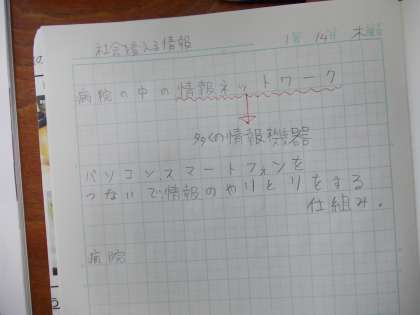 社会を支える情報 1月14日 木曜
病院の中の情報ネットワーク
多くの情報機器
パソコン、スマートフォンを
つないで情報のやりとりをする
仕組み。
病院